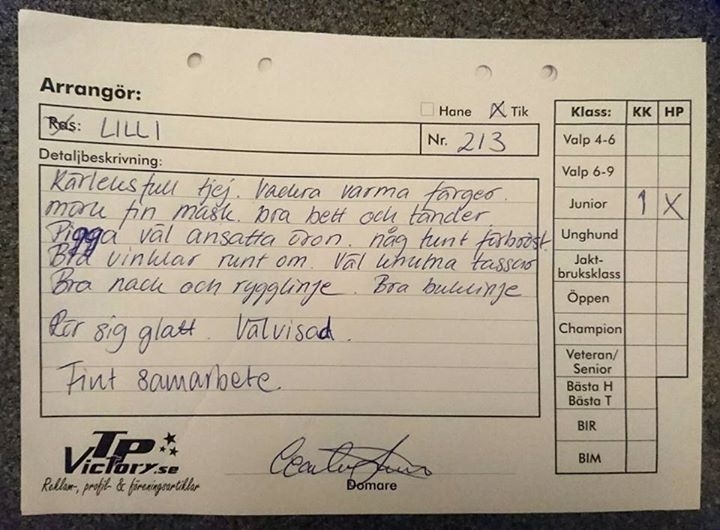 Arrangör:
Hane X Tik
Ras: LILLI
Nr. 213
Detaljbeskrivning:
Kärleksfull tjej. Vackra varma färger.
mörk fin mask. bra bett och tänder.
Pigga väl ansatta öron. någ tunt förbröst.
Bra vinklar runt om. Väl knutna tassar
Bra nack och rygglinje. Bra buklinje
Rör sig glatt. Välvisad.
Fint samarbete.
Klass: KK HP
Valp 4-6
Valp 6-9
Junior 1 X
Unghund
Jakt-
bruksklass
Öppen
Champion
Veteran/
Senior
Bästa H
Bästa T
BIR
BIM
TP
Victory.se
Reklam-, profil- & föreningsartiklar
Domare